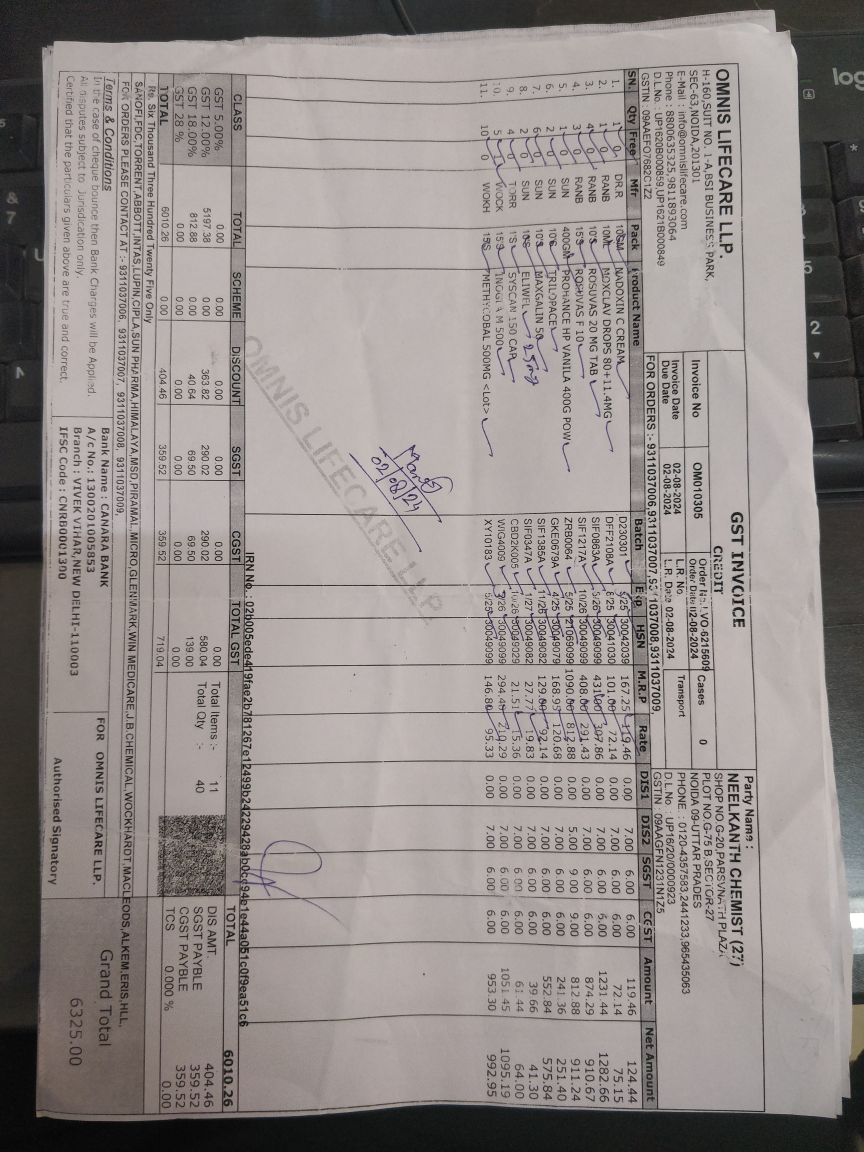 OMNIS LIFECARE LLP.
H-160,SUIT NO. 1-A,BSI BUSINESS PARK,
SEC-63,NOIDA,201301
E-Mail : info@omnislifecare.com
Phone : 8800635325,9811893064
D.L.No : UP1620B000859,UP1621B000849
GSTIN : 09AAEFO7682C1Z2
GST INVOICE
CREDIT
Invoice No OM010305 Order No. LVO-6215609 Cases 0
Invoice Date 02-08-2024 Order Date 02-08-2024
Due Date 02-08-2024 L.R. No. Transport
L.R. Date 02-08-2024
FOR ORDERS :- 9311037006,9311037007,9311037008,9311037009
Party Name :
NEELKANTH CHEMIST (27)
SHOP NO.G-20,PARSVNATH PLAZA
PLOT NO.G-75 B,SECTOR-27
NOIDA 09-UTTAR PRADES
PHONE : 0120-4357583,2441233,965435063
D.L.No UP16/20/0000923
GSTIN : 09AAGFN1231N1Z5
SN. Qty Free Mfr Pack Product Name Batch Exp HSN M.R.P Rate DIS1 DIS2 SGST CGST Amount Net Amount
1. 1 0 DR.R 10GM NADOXIN C CREAM D230301 5/25 30042039 167.25 119.46 0.00 7.00 6.00 6.00 119.46 124.44
2. 1 0 RANB 10ML MOXCLAV DROPS 80+11.4MG DFF2108A 8/25 30041030 101.00 72.14 0.00 7.00 6.00 6.00 72.14 75.15
3. 4 0 RANB 10'S ROSUVAS 20 MG TAB SIF0863A 5/26 30049099 431.00 307.86 0.00 7.00 6.00 6.00 1231.44 1282.66
4. 3 0 RANB 15'S ROSUVAS F 10 SIF1217A 10/26 30049099 408.00 291.43 0.00 7.00 6.00 6.00 874.29 910.67
5. 1 0 SUN 400GM PROHANCE HP VANILA 400G POW ZRB0064 5/25 21069099 1090.00 812.88 0.00 5.00 9.00 9.00 812.88 911.24
6. 2 0 SUN 10'S TRILOPACE GKE0679A 4/25 30049079 168.95 120.68 0.00 7.00 6.00 6.00 241.36 251.40
7. 6 0 SUN 10'S MAXGALIN 50 SIF1385A 11/26 30049082 129.00 92.14 0.00 7.00 6.00 6.00 552.84 575.84
8. 2 0 SUN 10'S ELIWEL 25mg SIF0347A 1/27 30049082 27.77 19.83 0.00 7.00 6.00 6.00 39.66 41.30
9. 4 0 TORR 1'S SYSCAN 150 CAP CBD2K005 10/26 30049029 21.51 15.36 0.00 7.00 6.00 6.00 61.44 64.00
10. 5 WOCK 15'S M 500 WIG4009 30049099 294.40 210.29 0.00 7.00 6.00 6.00 1051.45 1095.19
11. 10 0 WOKH 15'S METHYCOBAL 500MG <Lot> XY10183 5/26 30049099 146.80 95.33 0.00 7.00 6.00 6.00 953.30 992.95
02/08/24
OMNIS LIFECARE LLP
IRN No. : 02b005ede419fae2b781267e12499b24229428ab0cc94e1e44a051c0f9ea51c6
CLASS TOTAL SCHEME DISCOUNT SGST CGST TOTAL GST
GST 5.00% 0.00 0.00 0.00 0.00 0.00 0.00
GST 12.00% 5197.38 0.00 363.82 290.02 290.02 580.04
GST 18.00% 812.88 0.00 40.64 69.50 69.50 139.00
GST 28 % 0.00 0.00 0.00 0.00 0.00 0.00
TOTAL 6010.26 0.00 404.46 359.52 359.52 719.04
Total Items :- 11
Total Qty :- 40
TOTAL 6010.26
DIS AMT. 404.46
SGST PAYBLE 359.52
CGST PAYBLE 359.52
TCS 0.000 % 0.00
Rs. Six Thousand Three Hundred Twenty Five Only
SANOFI,FDC,TORRENT,ABBOTT,INTAS,LUPIN,CIPLA,SUN PHARMA,HIMALAYA,MSD,PIRAMAL,MICRO,GLENMARK,WIN MEDICARE,J.B.CHEMICAL,WOCKHARDT,MACLEODS,ALKEM,ERIS,HLL,
FOR ORDERS PLEASE CONTACT AT :- 9311037006, 9311037007, 9311037008, 9311037009,
Terms & Conditions
In the case of cheque bounce then Bank Charges will be Applied.
All disputes subject to Jurisdication only.
Certified that the particulars given above are true and correct.
Bank Name : CANARA BANK
A/c No.: 13002010058​53
Branch : VIVEK VIHAR,NEW DELHI-110003
IFSC Code : CNRB0001300
FOR OMNIS LIFECARE LLP.
Authorised Signatory
Grand Total
6325.00